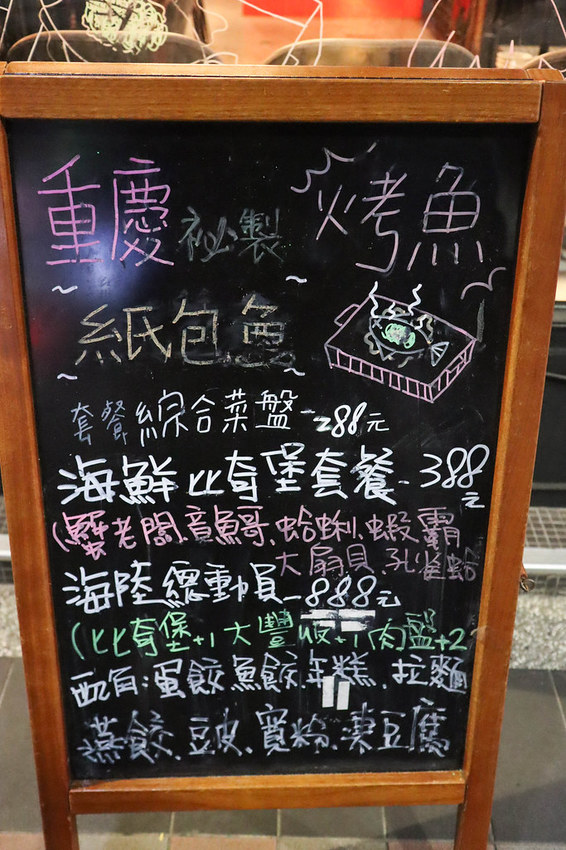 重慶祕製 烤魚
~ ~
紙包魚
~ ~
套餐綜合菜盤-288元
海鮮比奇堡套餐-388元
(蟹老闆.章魚哥.蛤蜊.蝦霸
大扇貝 孔雀蛤
海陸總動員-888元
(比奇堡+1大豐收+1肉盤+2
配角:蛋餃.魚餃.年糕.拉麵
燕餃.豆皮.寬粉.凍豆腐